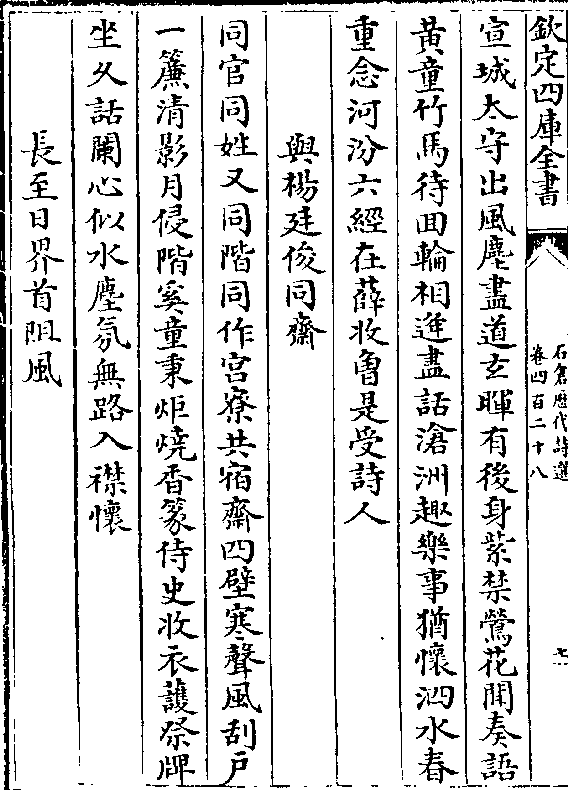 欽定四庫全書
石倉歷代詩選
卷四百二十八
七
宣城太守出風塵盡道玄暉有後身紫禁鶯花聞奏語
黃童竹馬待回輪相逢盡話滄洲趣樂事猶懷泗水春
重念河汾六經在薛收曾是受詩人
與楊廷俊同齋
同官同姓又同階同作宫寮共宿齋四壁寒聲風刮戶
一簾清影月侵階奚童秉炬燒香篆侍史收衣護祭牌
坐久話闌心似水塵氛無路入襟懷
長至日界首阻風